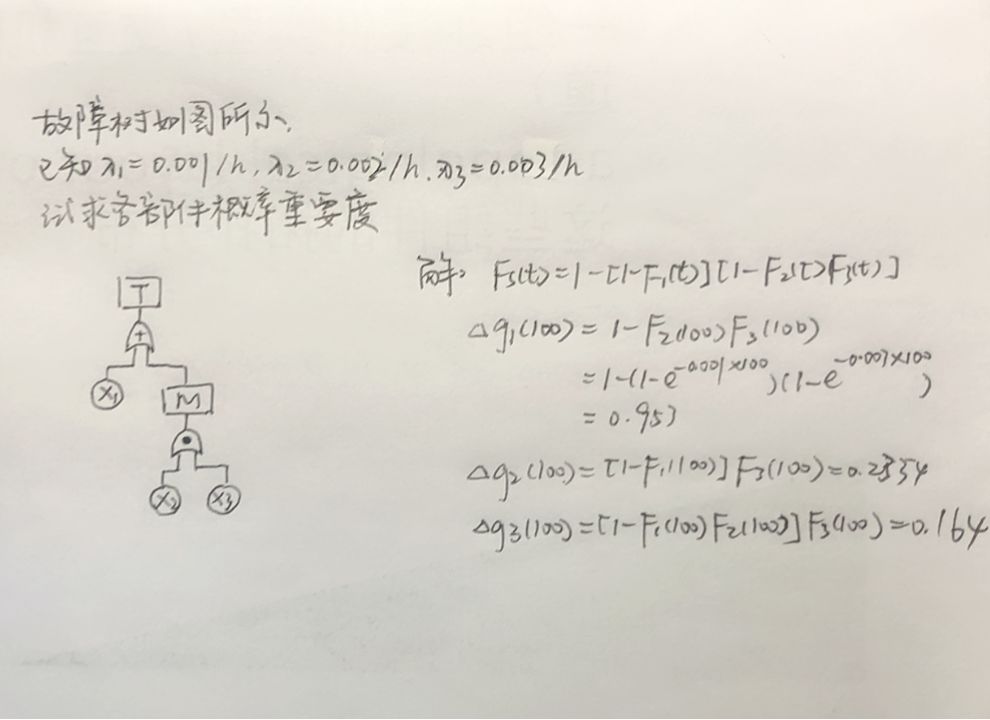 故障树如图所示,
已知λ1=0.001/h,λ2=0.002/h,λ3=0.003/h
试求各部件概率重要度
T
+
X1
M
•
X2
X3
解: Fs(t)=1-[1-F1(t)][1-F2(t)F3(t)]
△g1(100)=1-F2(100)F3(100)
=1-(1-e^-0.001×100)(1-e^-0.003×100)
=0.953
△g2(100)=[1-F1(100)]F3(100)=0.2354
△g3(100)=[1-F1(100)F2(100)]F3(100)=0.164